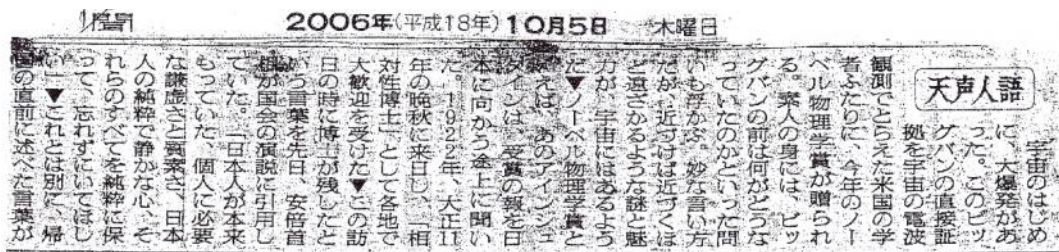 2006年(平成18年)10月5日 木曜日
天声人語
宇宙のはじめ
に、大爆発があ
った。このビッ
グバンの直接証
拠を宇宙の電波
観測でとらえた米国の学
者ふたりに、今年のノー
ベル物理学賞が贈られ
る。素人の身には、ビッ
グバンの前は何がどうな
っていたのかといった問
いも浮かぶ。妙な言い方
だが、近づけば近づくほ
ど遠ざかるような謎と魅
力が、宇宙にはあるよう
だ▼ノーベル物理学賞と
えば、あのアインシュ
タインは、受賞の報を日
本に向かう途上に聞い
た。1922年、大正11
年の晩秋に来日し、「相
対性博士」として各地で
大歓迎を受けた▼この訪
日の時に博士が残したと
いう言葉を先日、安倍首
相が国会の演説に引用し
ていた。「日本人が本来
もっていた、個人に必要
な謙虚さと質素さ、日本
人の純粋で静かな心、そ
れらのすべてを純粋に保
って、忘れずにいてほし
い」▼これとは別に、帰
国の直前に述べた言葉が